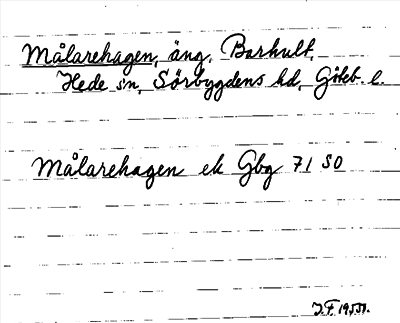 Målarehagen, äng, Barhult,
Hede sn, Sörbygdens hd, Göteb. l.
Målarehagen ek Gbg 71 SO